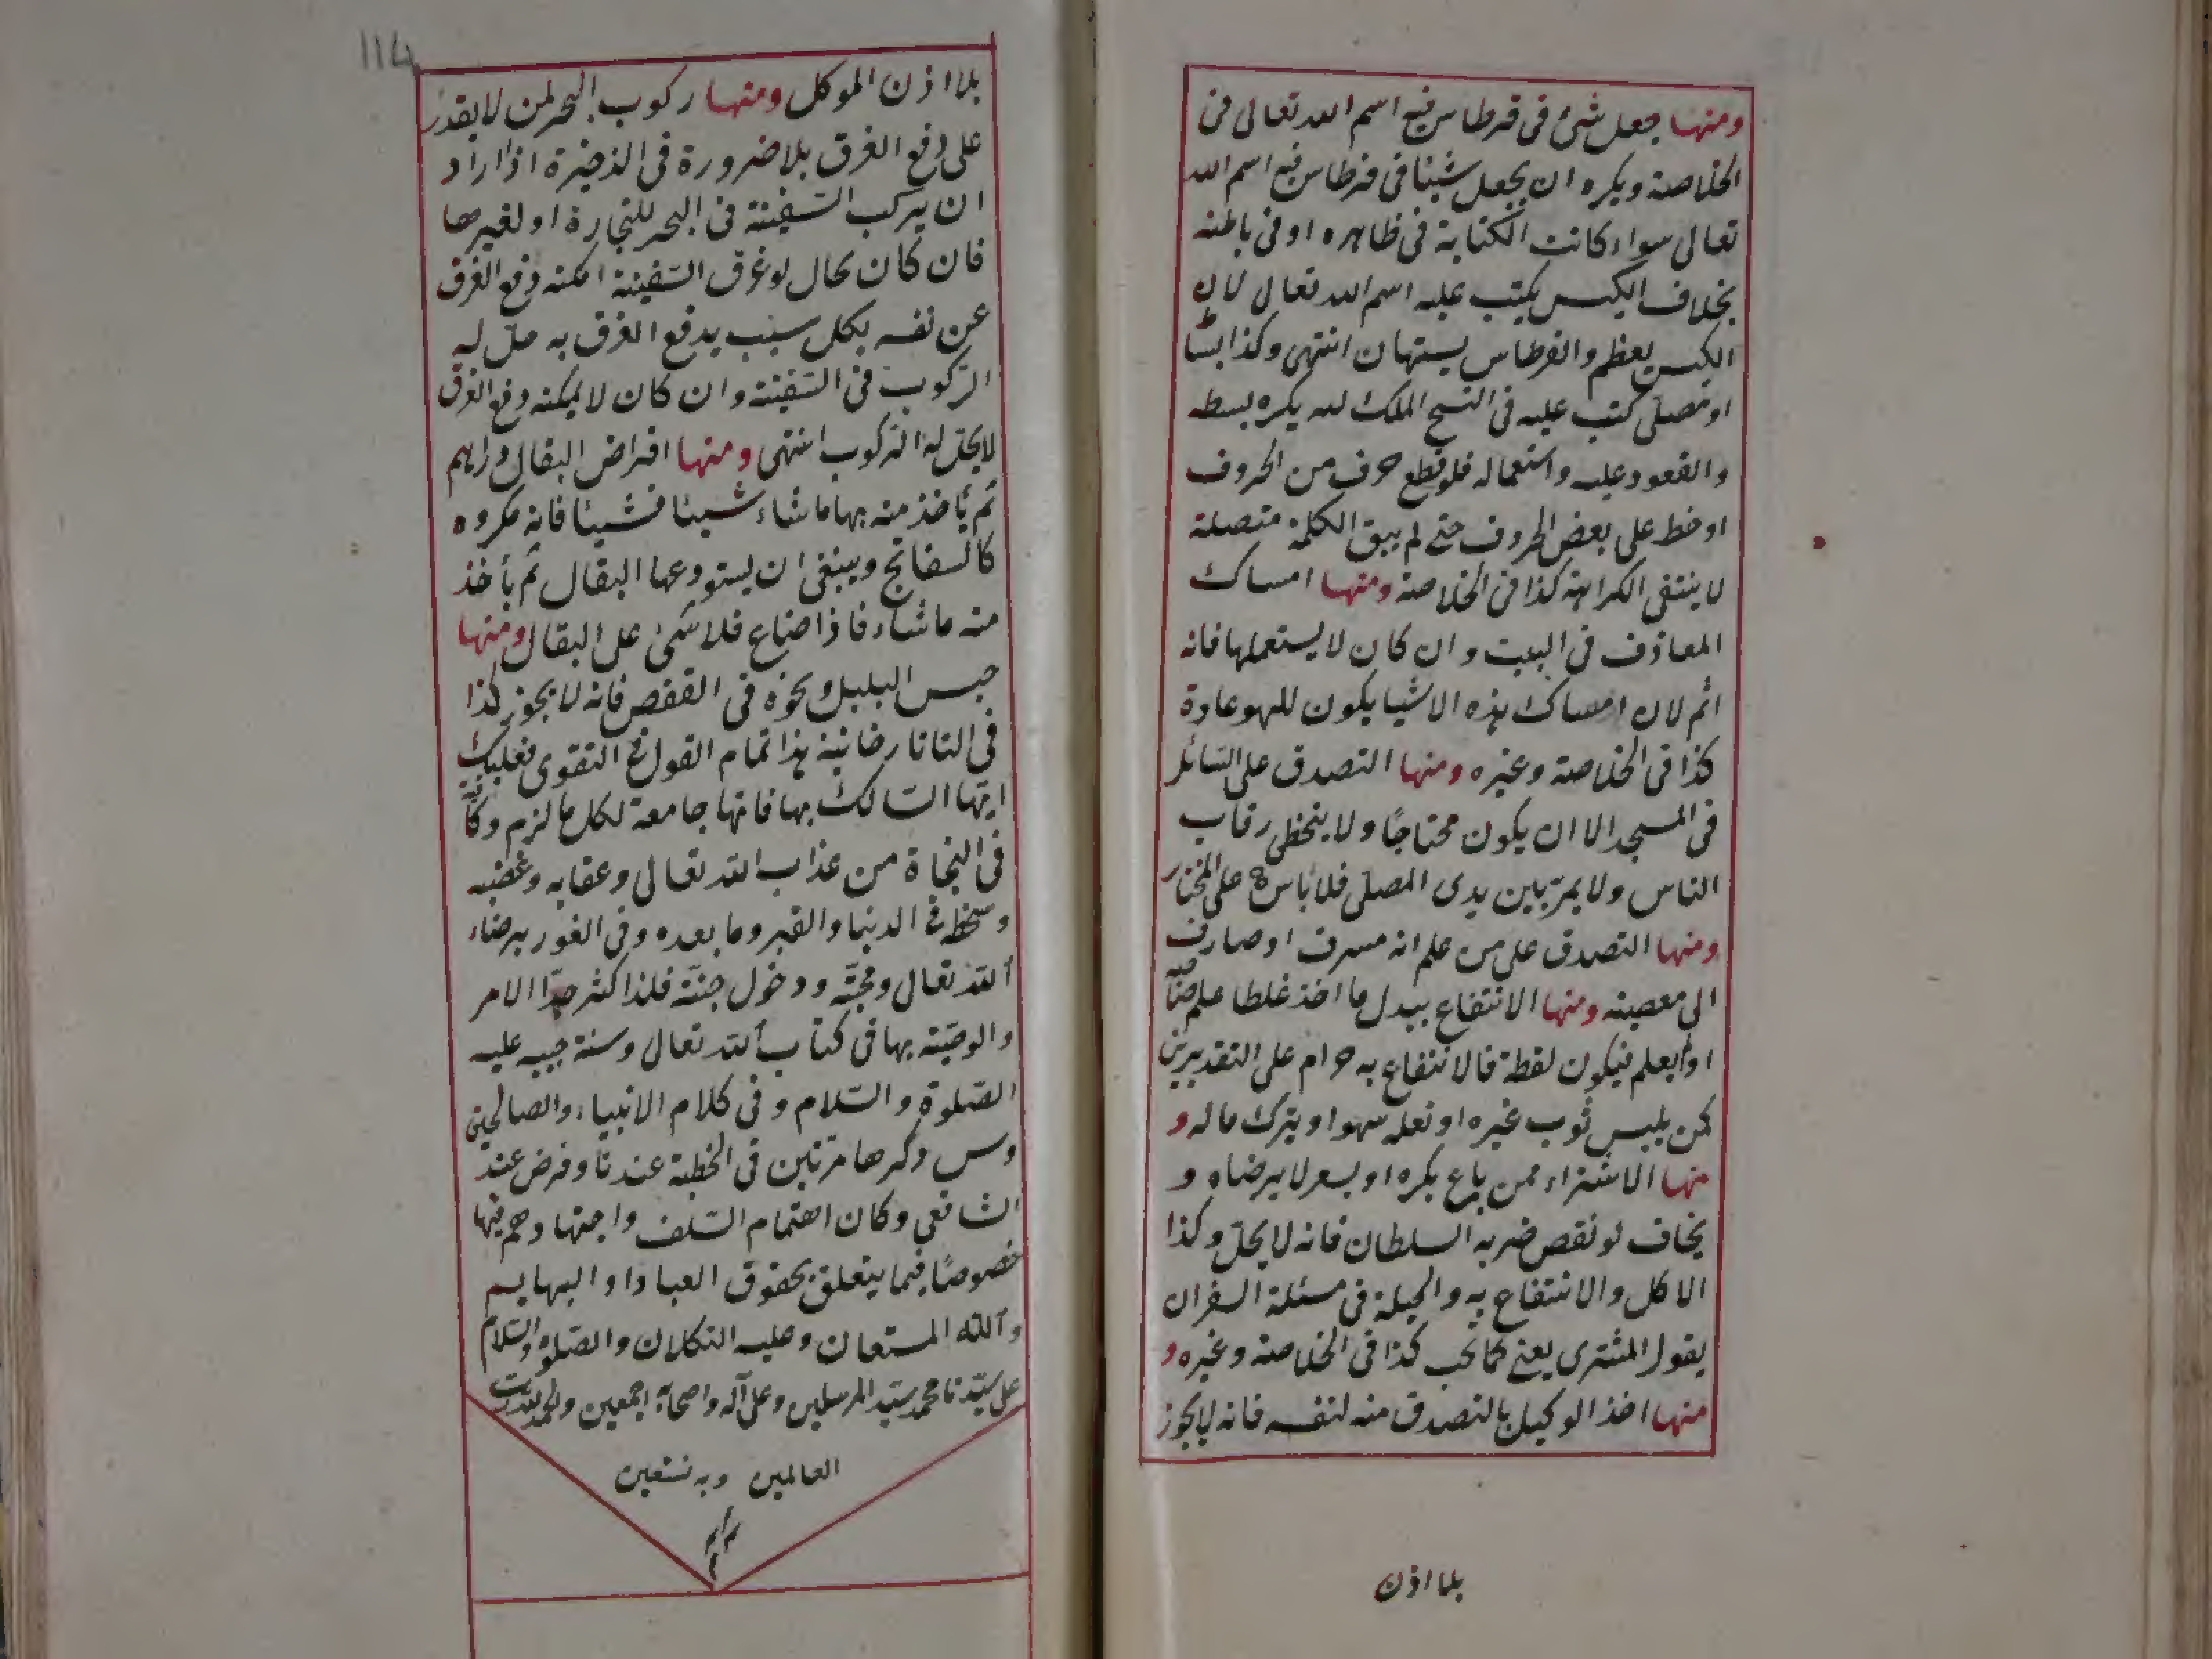 ومنها جعل شئ في قرطاس فيه اسم الله تعالى في
الخلاصة ويكره ان يجعل شيئا في قرطاس فيه اسم الله
تعالى سواء كانت الكتابة في ظاهره او في باطنه
بخلاف الكيس يكتب عليه اسم الله تعالى لان
الكيس يعظم والقرطاس يستهان انتهى وكذا بساط
او مصلى كتب عليه في النسج الملك لله يكره بسطه
والقعود عليه واستعماله فلو قطع حرف من الحروف
او خط على بعض الحروف حتى لم يبق الكلمة متصلة
لا ينتفى الكراهة كذا في الخلاصة ومنها امساك
المعازف في البيت وان كان لا يستعملها فانه
اثم لان امساك هذه الاشيا يكون للهو عادة
كذا في الخلاصة وغيره ومنها التصدق على السائل
في المسجد الا ان يكون محتاجًا ولا يتخطى رقاب
الناس ولا يمرّ بين يدى المصلى فلا بأس ح على المختار
ومنها التصدق على من علم انه مسرف او صارف
الى معصية ومنها الانتفاع ببدل ما اخذ غلطا علم صاحبه
او لم يعلم فيكون لقطة فالانتفاع به حرام على التقديرين
كمن يلبس ثوب غيره او نعله سهوا ويترك ماله و
منها الاشتراء ممن باع بكره او بسعر لا يرضاه و
يخاف لو نقص ضربه السلطان فانه لا يحلّ وكذا
الاكل والانتفاع به والحيلة في مسئلة السعر ان
يقول المشترى بعنى كما تحب كذا في الخلاصة وغيره و
منها اخذ الوكيل بالتصدق منه لنفسه فانه لا يجوز
بلا اذن
114
بلا اذن الموكل ومنها ركوب البحر لمن لا يقدر
على دفع الغرق بلا ضرورة في الذخيرة اذا اراد
ان يركب السّفينة في البحر للتجارة او لغيرها
فان كان بحال لو غرق السّفينة امكنه دفع الغرق
عن نفسه بكل سبب يدفع الغرق به حلّ له
الرّكوب في السّفينة وان كان لا يمكنه دفع الغرق
لا يحلّ له الرّكوب انتهى ومنها اقراض البقال دراهم
ثم يأخذ منه بها ما شاء شيئا فشيئا فانه مكروه
كالسفاتج وينبغى ان يستودعها البقال ثم يأخذ
منه ما شاء فاذا ضاع فلا شئ على البقال ومنها
حبس البلبل ونحوه في القفص فانه لا يجوز كذا
في التاتارخانية هذا تمام القول في التقوى فعليك
ايّها السّالك بها فانها جامعة لكل ما لزم وكافية
في النجاة من عذاب الله تعالى وعقابه وغضبه
وسخطه في الدنيا والقبر وما بعده وفي الفوز برضاء
الله تعالى ومحبّته ودخول جنّته فلذا كثر جدّا الامر
والوصّية بها في كتاب الله تعالى وسنة حبيبه عليه
الصّلوة والسّلام وفي كلام الانبياء والصالحين
وسن ذكرها مرتين في الخطبة عندنا وفرض عند
الشافعي وكان اهتمام السّلف واجتهادهم فيها
خصوصًا فيما يتعلق بحقوق العباد او البهايم
والله المستعان وعليه التكلان والصّلوة والسّلام
على سيّدنا محمد سيّد المرسلين وعلى آله واصحابه اجمعين والحمد لله رب
العالمين وبه نستعين